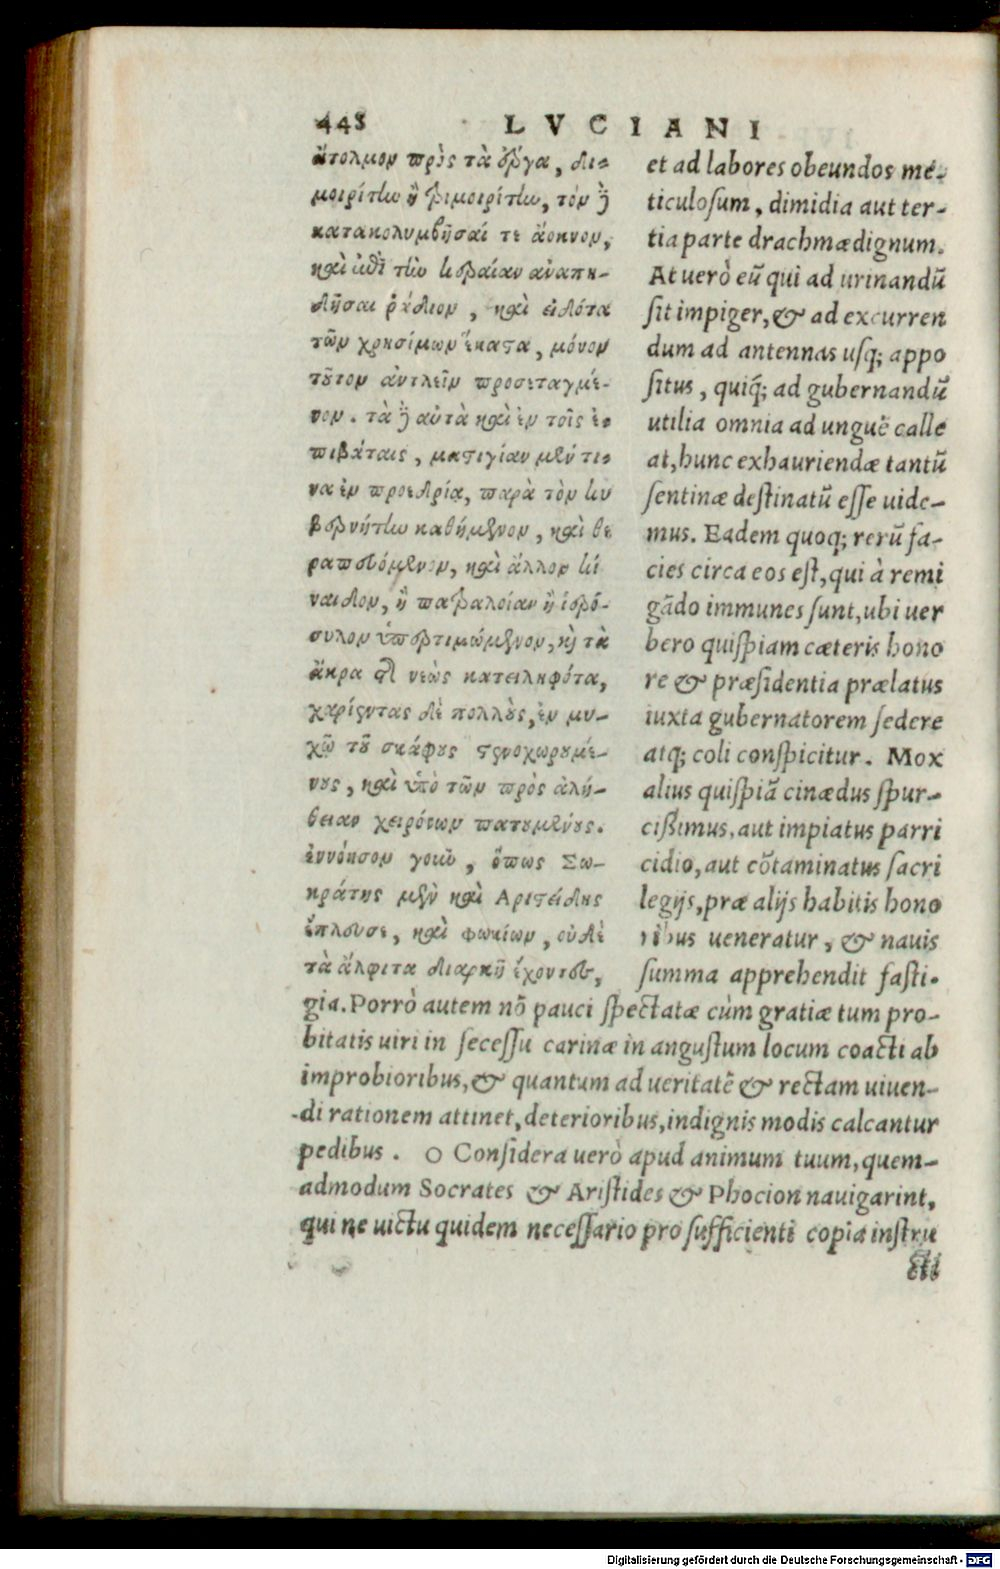 448 LVCIANI
ἄτολμον πρὸς τὰ ἔργα, δι-
μοιρίτην ἢ τριμοιρίτην, τὸν δὲ
κατακολυμβῆσαί τε ἄοκνον,
καὶ ἐπὶ τὴν κεραίαν ἀναπη-
δῆσαι ῥᾴδιον, καὶ εἰδότα
τῶν χρησίμων ἕκαστα, μόνον
τοῦτον ἀντλεῖν προστεταγμέ-
νον. τὰ δὲ αὐτὰ καὶ ἐν τοῖς ἐ-
πιβάταις, μαστιγίαν μέν τι-
να ἐν προεδρίᾳ, παρὰ τὸν κυ
βερνήτην καθήμενον, καὶ θε
ραπευόμενον, καὶ ἄλλον κί
ναιδον, ἢ πατραλοίαν ἢ ἱερό-
συλον ὑπερτιμώμενον, καὶ τὰ
ἄκρα τῆς νεὼς κατειληφότα,
χαρίεντας δὲ πολλοὺς, ἐν μυ-
χῷ τοῦ σκάφους στενοχωρουμέ-
νους, καὶ ὑπὸ τῶν πρὸς ἀλή-
θειαν χειρόνων πατουμένους.
ἐννόησον γοῦν, ὅπως Σω-
κράτης μὲν καὶ Αριστείδης
ἔπλευσε, καὶ φωκίων, οὐδὲ
τὰ ἄλφιτα διαρκῆ ἔχοντες,
et ad labores obeundos me-
ticulosum, dimidia aut ter-
tia parte drachmæ dignum.
At uerò eū qui ad urinandū
sit impiger, & ad excurren
dum ad antennas usq; appo
situs, quiq́; ad gubernandū
utilia omnia ad unguē calle
at, hunc exhauriendæ tantū
sentinæ destinatū esse uide-
mus. Eadem quoq; rerū fa-
cies circa eos est, qui à remi
gādo immunes sunt, ubi uer
bero quispiam cæteris hono
re & præsidentia prælatus
iuxta gubernatorem sedere
atq; coli conspicitur. Mox
alius quispiā cinædus spur-
cißimus, aut impiatus parri
cidio, aut cōtaminatus sacri
legijs, præ alijs habitis hono
ribus ueneratur, & nauis
summa apprehendit fasti-
gia. Porrò autem nō pauci spectatæ cùm gratiæ tum pro-
bitatis uiri in secessu carinæ in angustum locum coacti ab
improbioribus, & quantum ad ueritatē & rectam uiuen-
di rationem attinet, deterioribus, indignis modis calcantur
pedibus. O Considera uerò apud animum tuum, quem-
admodum Socrates & Aristides & Phocion nauigarint,
qui ne uictu quidem necessario pro sufficienti copia instru
cti
Digitalisierung gefördert durch die Deutsche Forschungsgemeinschaft - DFG